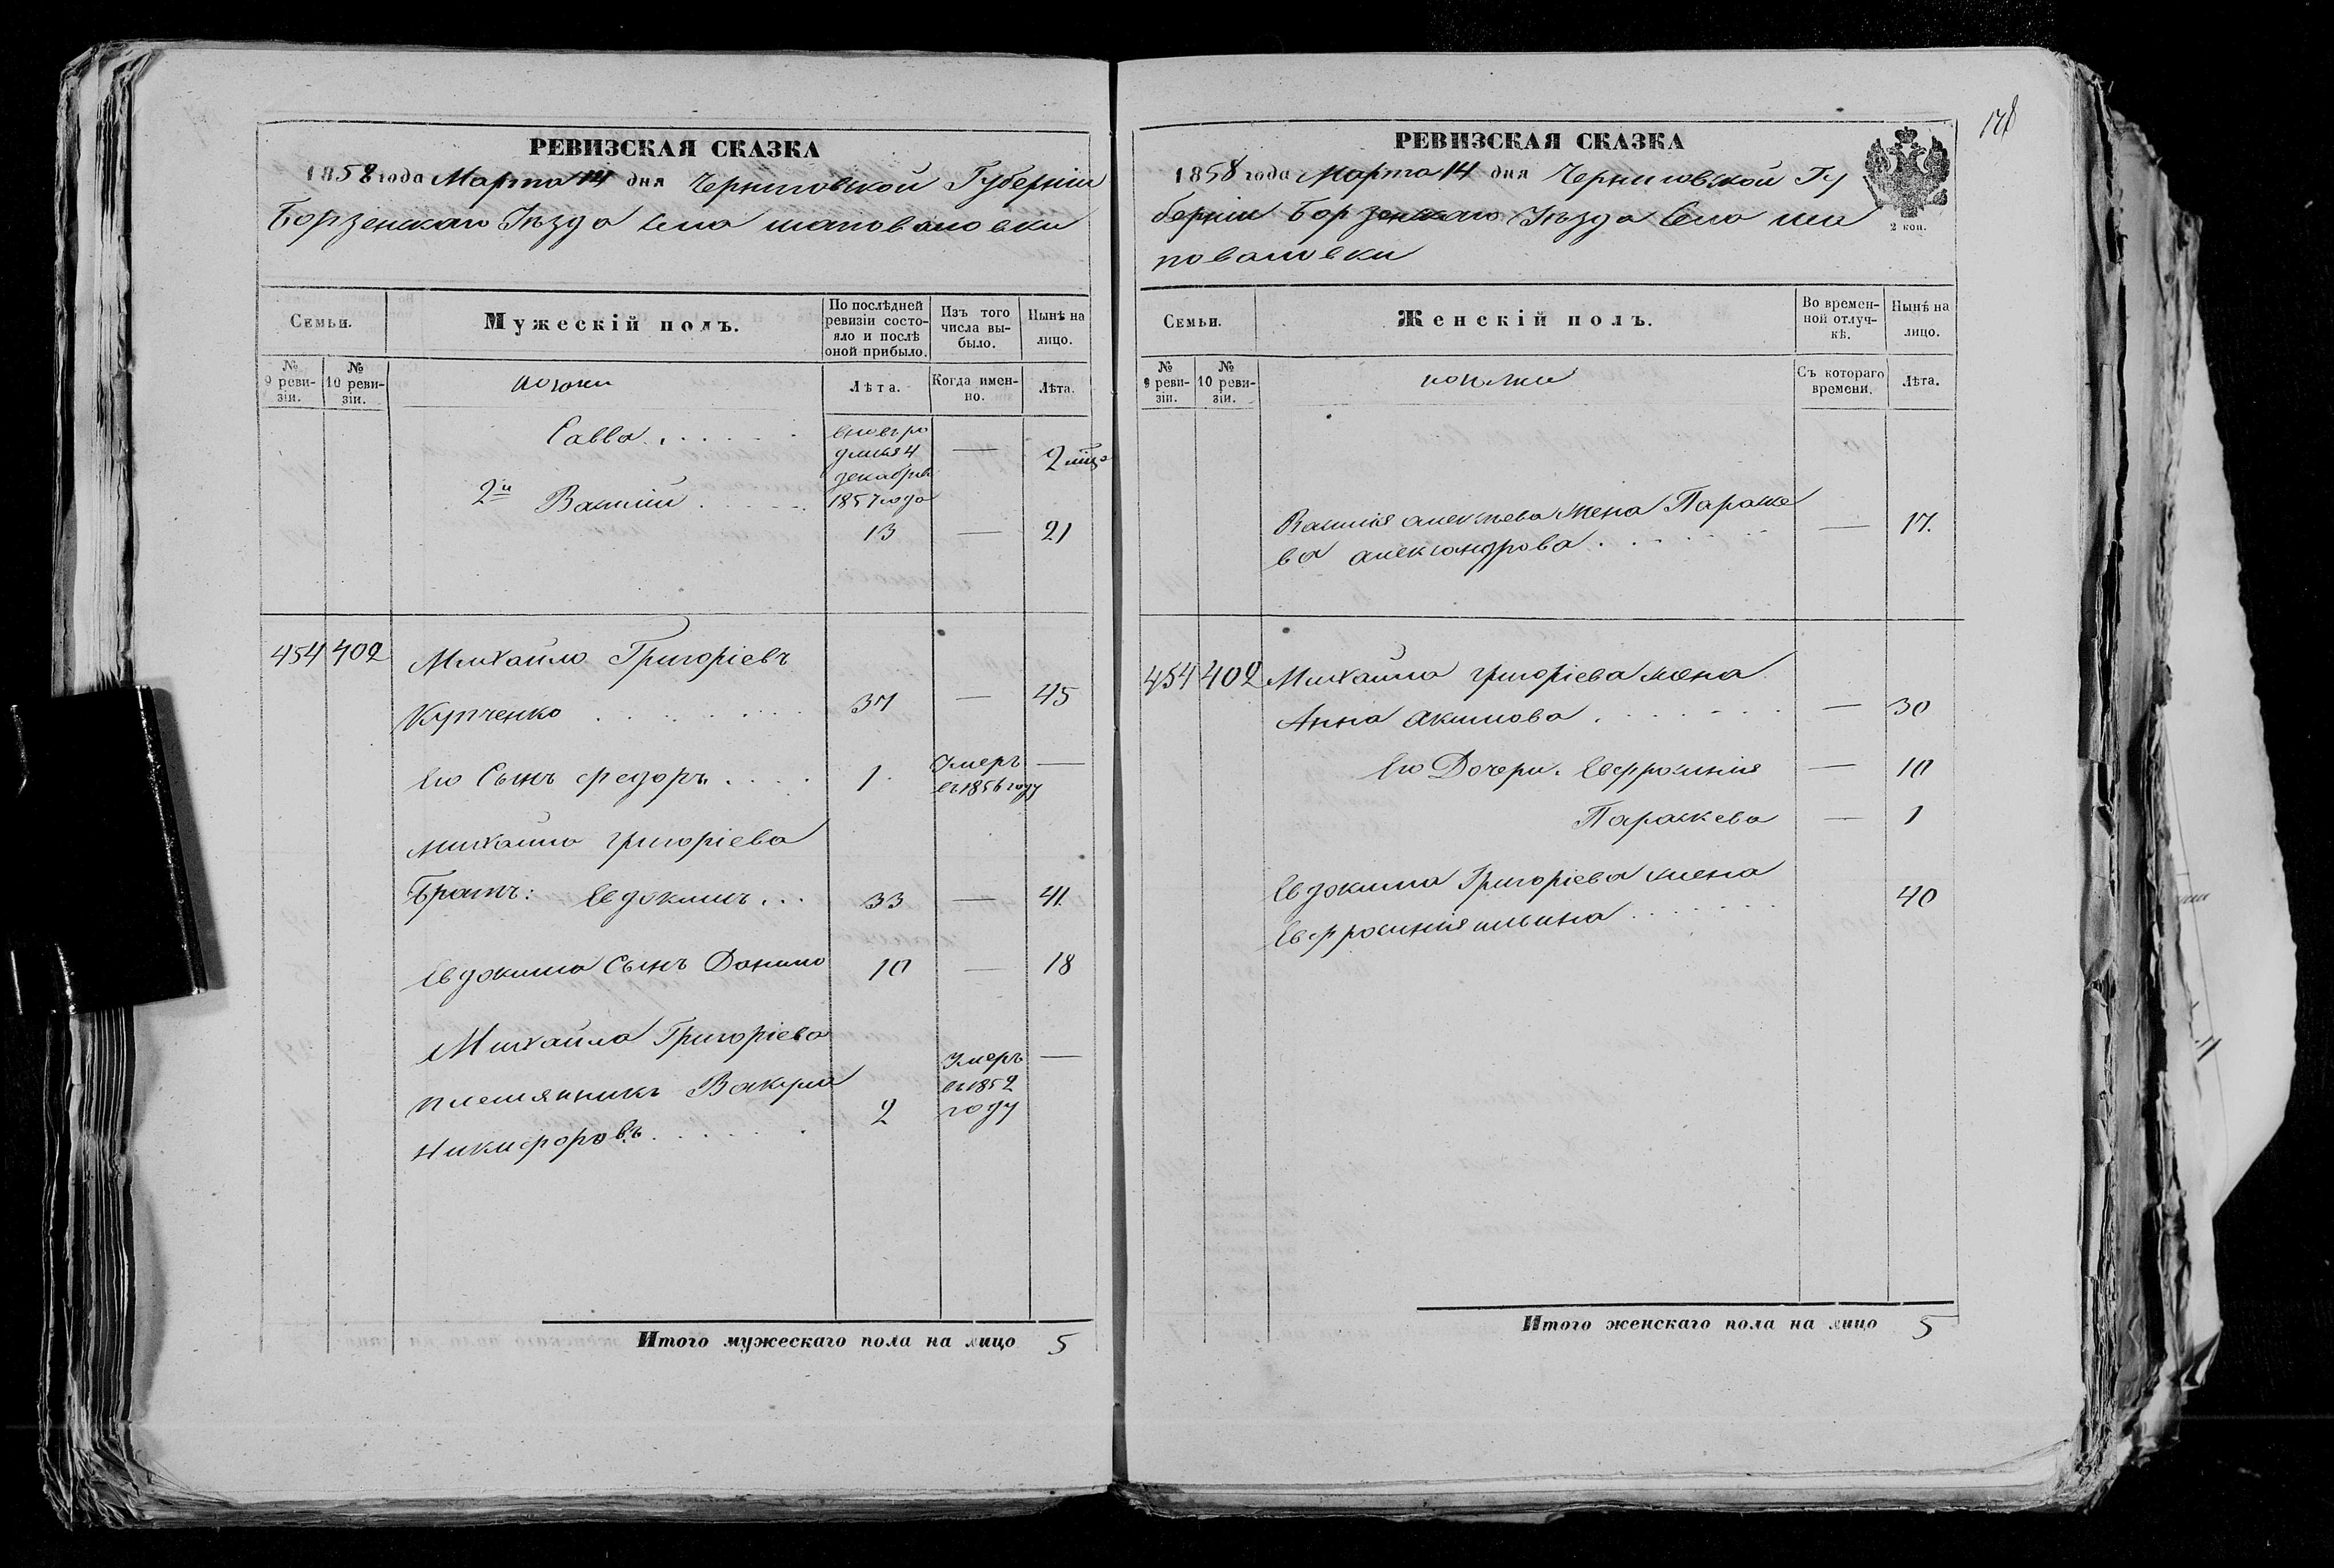 178
РЕВИЗСКАЯ СКАЗКА
1858 года Марта 14 дня Черниговской Губерніи
Борзенскаго Уѣзда Села Шаповаловки
Семьи.
Мужескій полъ.
По послѣдней ревизіи состояло и послѣ оной прибыло.
Изъ того числа выбыло.
Нынѣ на лицо.
№ 9 ревизіи.
№ 10 ревизіи.
козаки
Лѣта.
Когда именно.
Лѣта.
Савва
вновь ро
4
декабря
1857 года
—
2
2й Василій
13 — 21
454 402 Михайло Григоріевъ
Купченко 37 — 45
Его Сынъ Федоръ 1 Умеръ въ 1856 году —
Михайла Григоріева
Братъ: Евдокимъ 33 — 41
Евдокима Сынъ Данило 10 — 18
Михайла Григоріева
племянникъ Вакула
Никифоровъ 2 Умеръ въ 1852 году —
Итого мужескаго пола на лицо 5
РЕВИЗСКАЯ СКАЗКА
1858 года Марта 14 дня Черниговской Гу
берніи Борзенскаго Уѣзда Села Ша
поваловки
2 коп.
Семьи.
Женскій полъ.
Во временной отлучкѣ.
Нынѣ на лицо.
№ 9 ревизіи.
№ 10 ревизіи.
Съ котораго времени.
Лѣта.
Василія Алексѣева жена Параске
ва Александрова — 17.
454 402 Михайла Григоріева жена
Анна Акимова — 30
Его Дочери: Евфросинія — 10
Параскева — 1
Евдокима Григоріева жена
Евфросинія Ильина 40
Итого женскаго пола на лицо 5